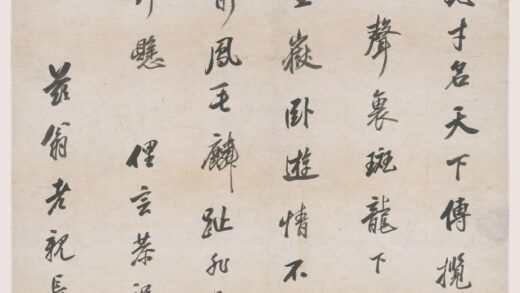 才名天下傳攬
聲裏斑龍下
嶽臥遊情不
鳳毛麟趾
懸 俚言恭
翁老親